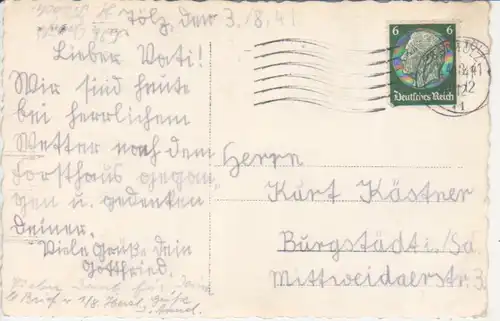 Tölz, den 3./8.41
Lieber Vati!
Wir sind heute
bei herrlichem
Wetter nach dem
Forsthaus gegan-
gen u. gedenken
Deiner.
Viele Grüße Dein
Gottfried.
Brief v. 1/8. Herzl. Grüße
6 6
Deutsches Reich
12
Herrn
Kurt Kästner
Burgstädt i./Sa.
Mittweidaerstr. 3